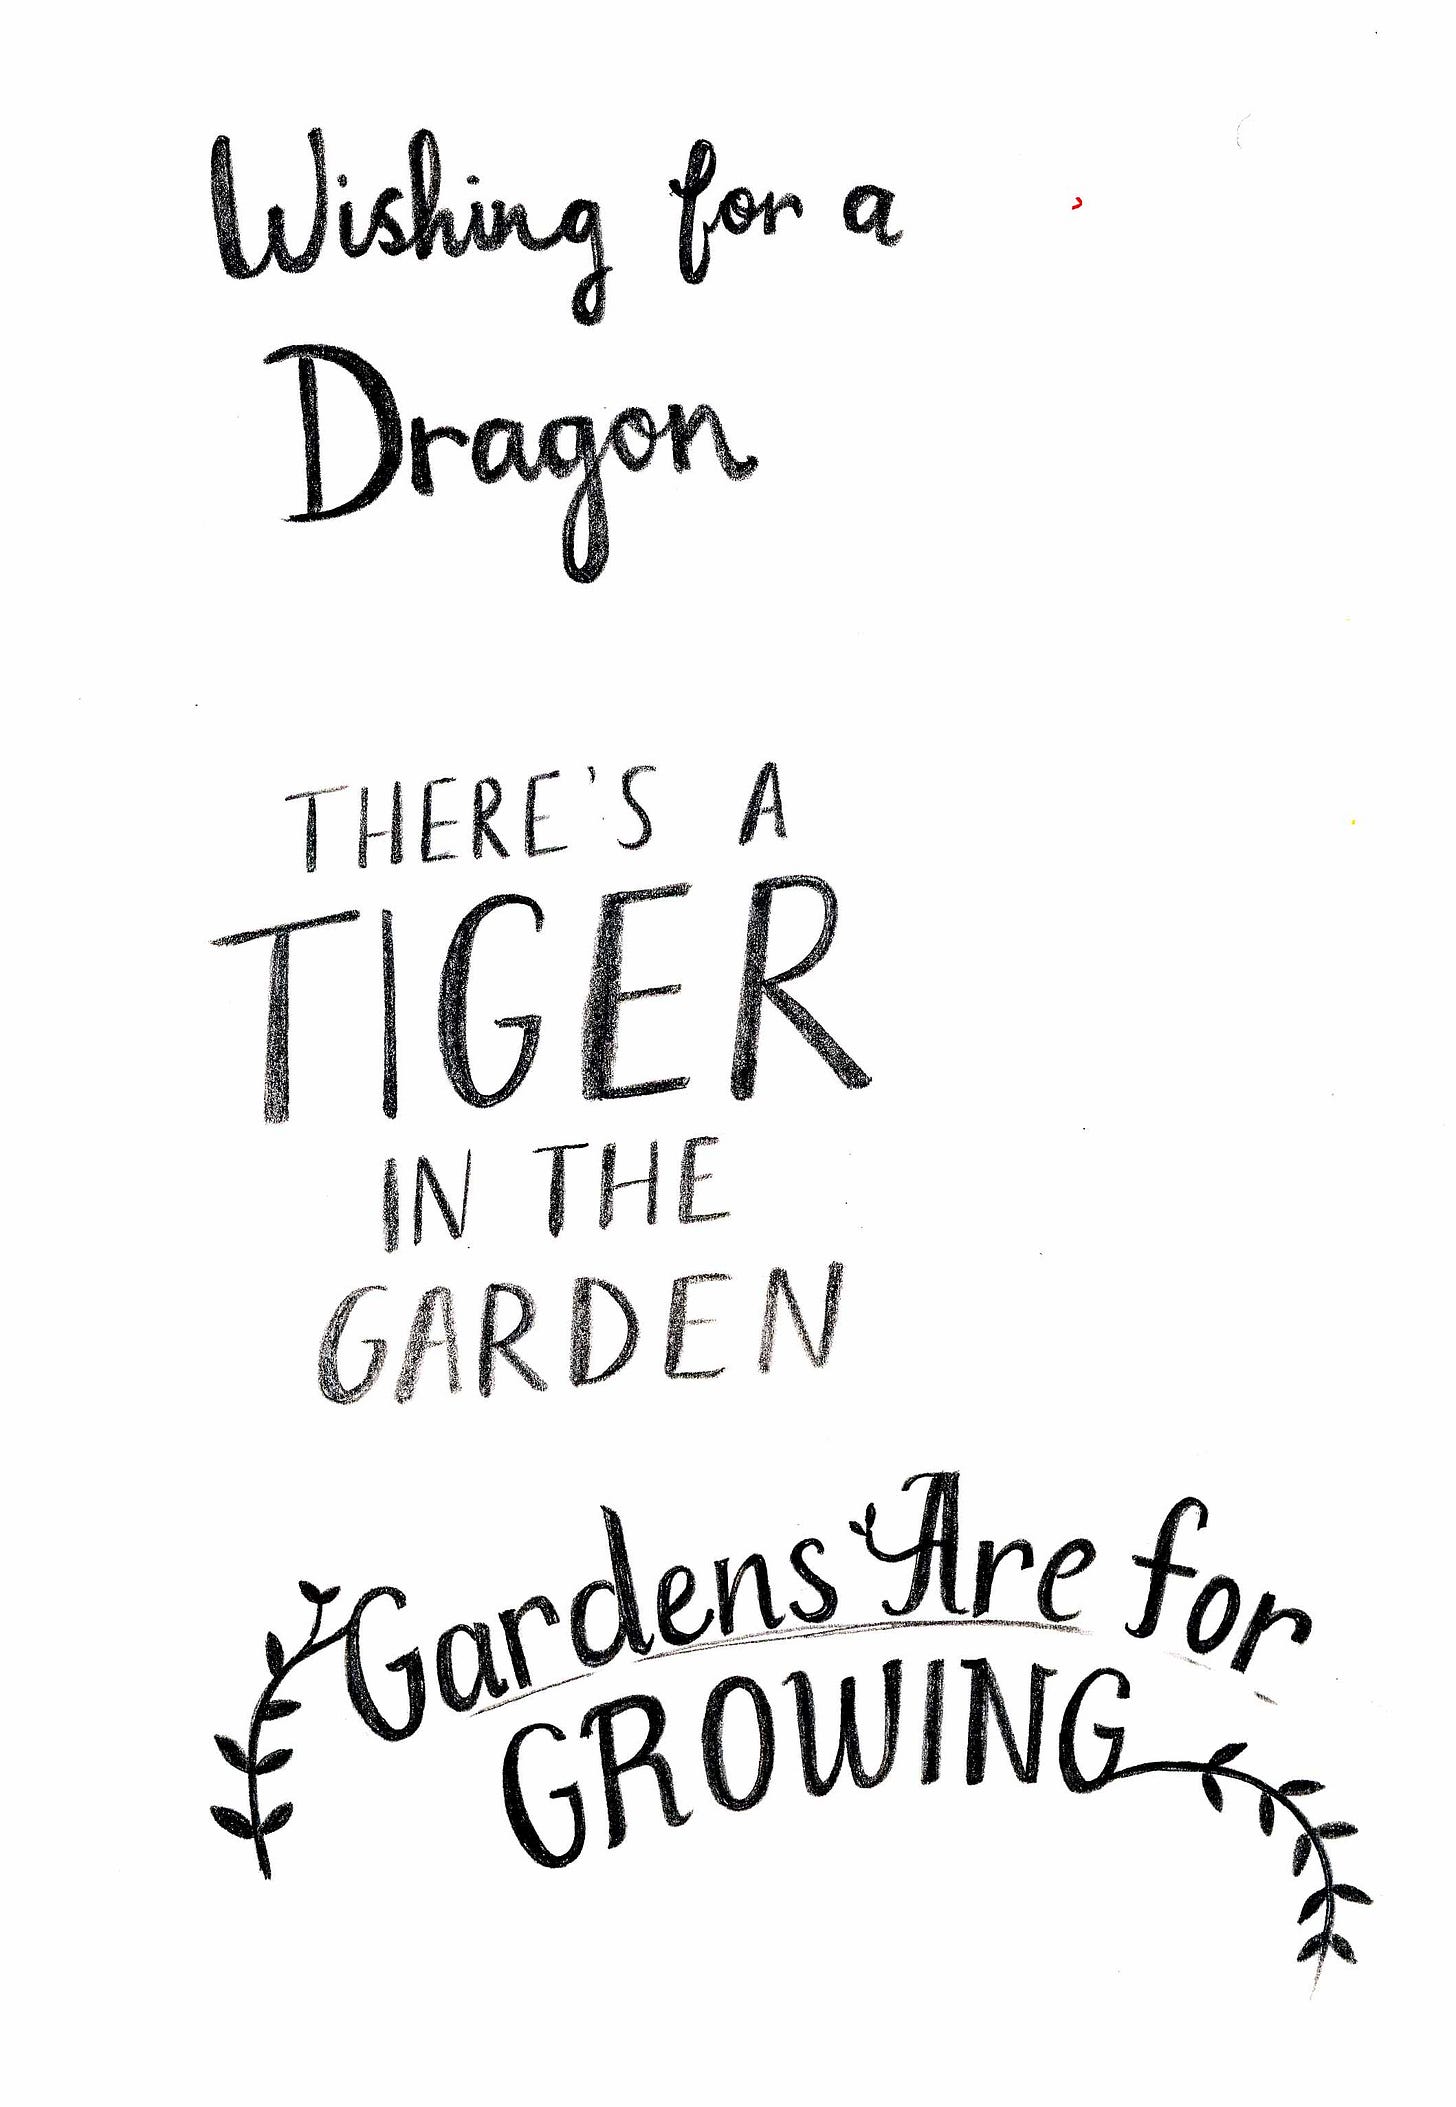 Wishing for a
Dragon
THERE'S A
TIGER
IN THE
GARDEN
Gardens Are for
GROWING